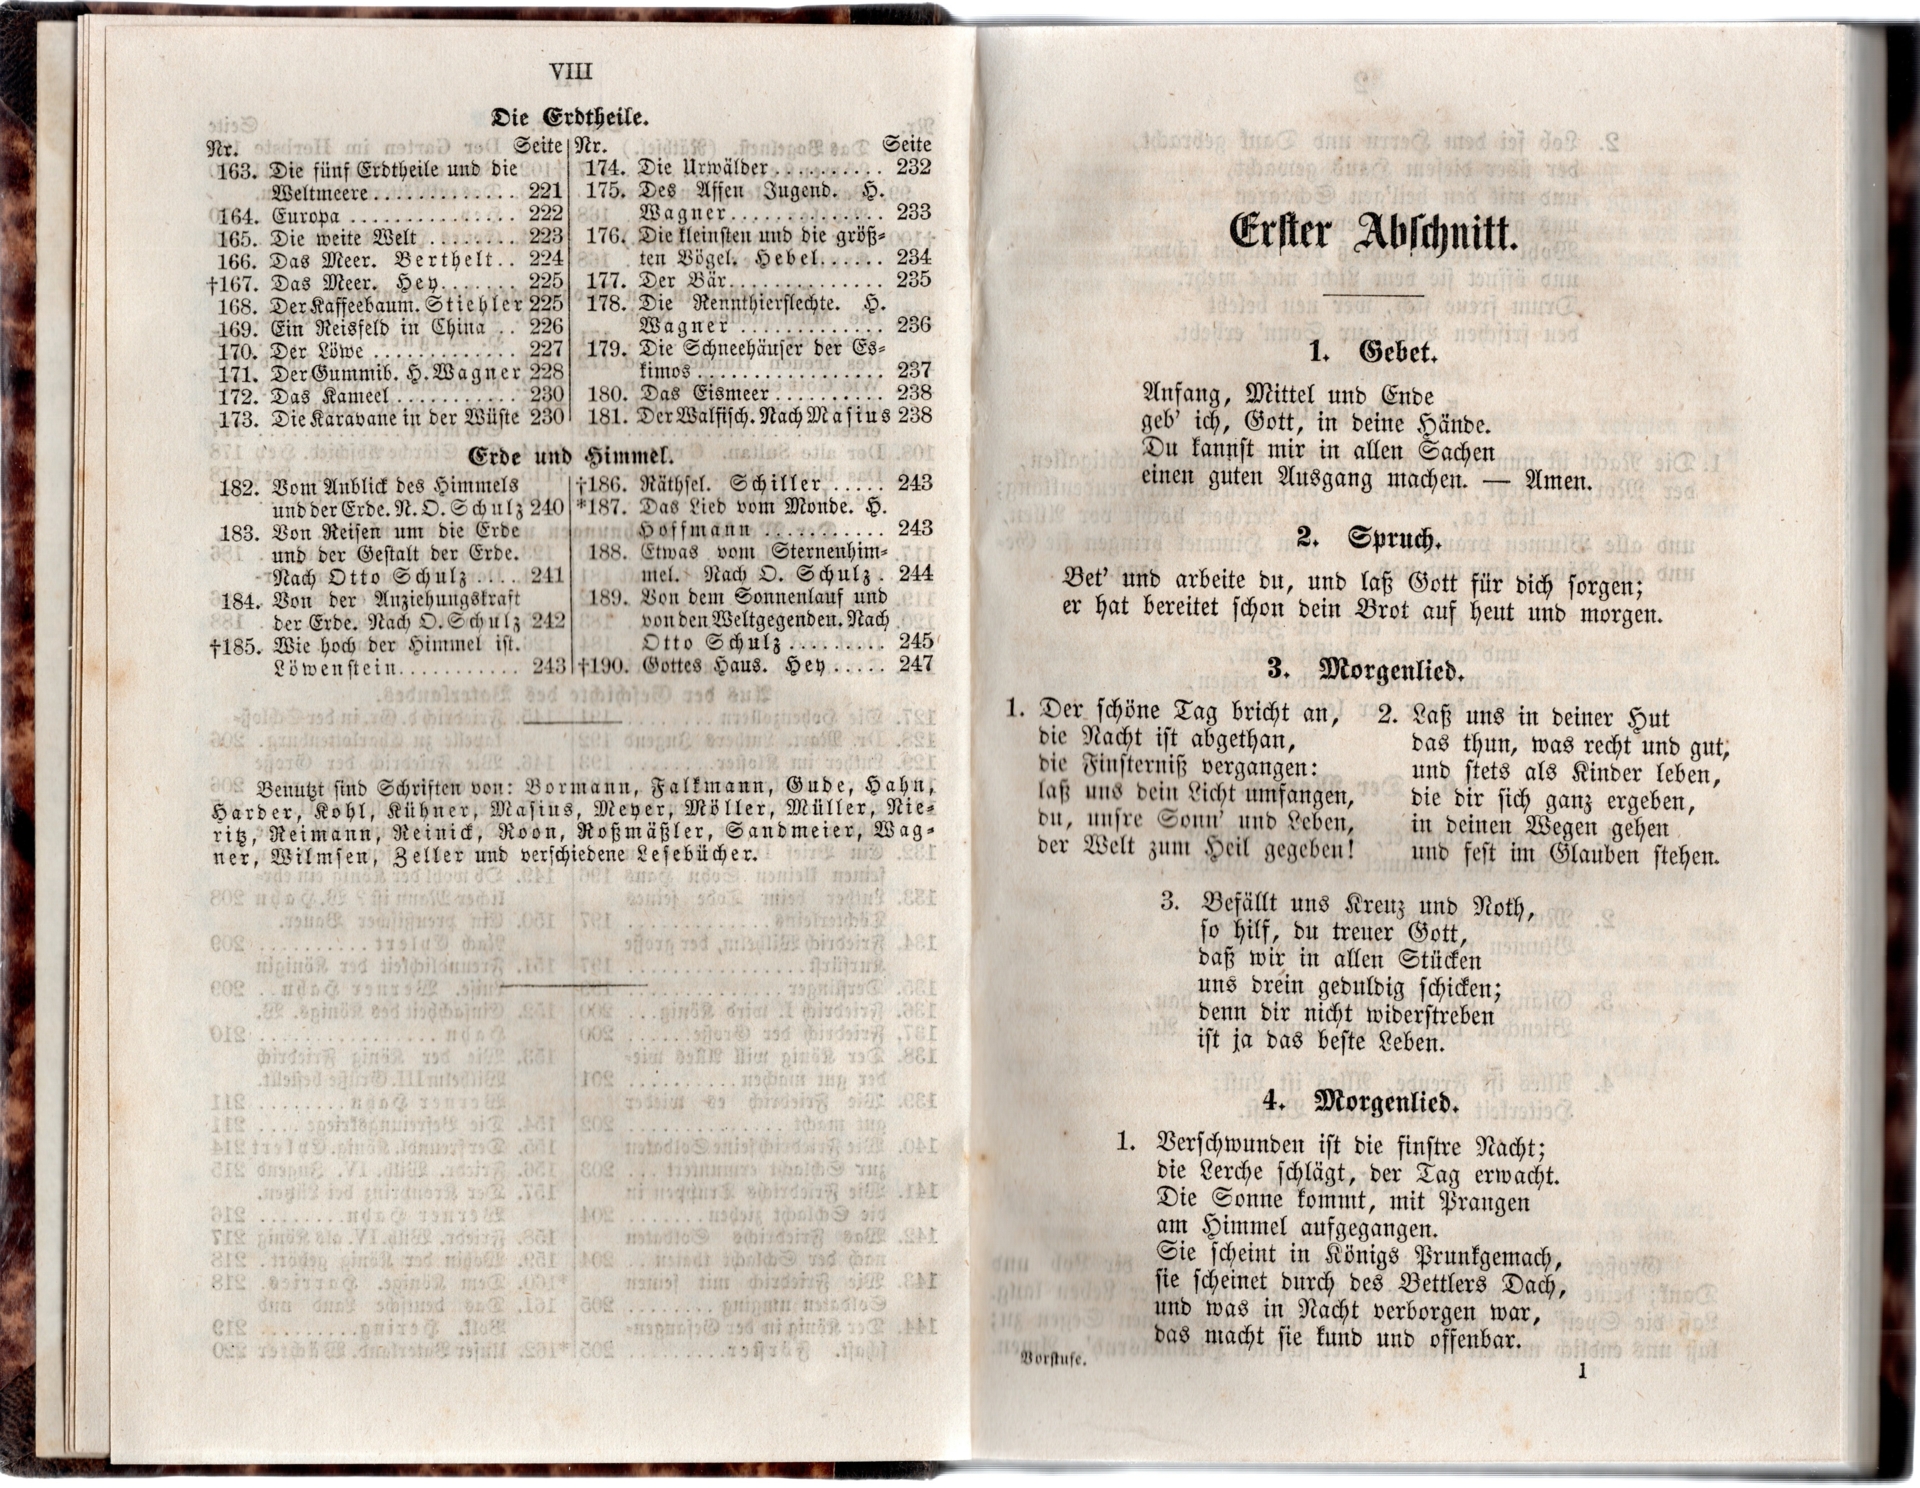 VIII
Die Erdtheile.
Nr. Seite
163. Die fünf Erdtheile und die
Weltmeere............. 221
164. Europa ............... 222
165. Die weite Welt ........ 223
166. Das Meer. Berthelt.. 224
†167. Das Meer. Hey....... 225
168. Der Kaffeebaum. Stiehler 225
169. Ein Reisfeld in China .. 226
170. Der Löwe ............. 227
171. Der Gummib. H. Wagner 228
172. Das Kameel........... 230
173. Die Karavane in der Wüste 230
Nr. Seite
174. Die Urwälder.......... 232
175. Des Affen Jugend. H.
Wagner.............. 233
176. Die kleinsten und die größ-
ten Vögel. Hebel...... 234
177. Der Bär.............. 235
178. Die Rennthierflechte. H.
Wagner ............. 236
179. Die Schneehäuser der Es-
kimos................ 237
180. Das Eismeer.......... 238
181. Der Walfisch. Nach Masius 238
Erde und Himmel.
182. Vom Anblick des Himmels
und der Erde. N. O. Schulz 240
183. Von Reisen um die Erde
und der Gestalt der Erde.
Nach Otto Schulz .... 241
184. Von der Anziehungskraft
der Erde. Nach O. Schulz 242
†185. Wie hoch der Himmel ist.
Löwenstein........... 243
†186. Räthsel. Schiller ..... 243
*187. Das Lied vom Monde. H.
Hoffmann ........... 243
188. Etwas vom Sternenhim-
mel. Nach O. Schulz . 244
189. Von dem Sonnenlauf und
von den Weltgegenden. Nach
Otto Schulz......... 245
†190. Gottes Haus. Hey..... 247
Benutzt sind Schriften von: Bormann, Falkmann, Gude, Hahn,
Harder, Kohl, Kühner, Masius, Meyer, Möller, Müller, Nie-
ritz, Reimann, Reinick, Roon, Roßmäßler, Sandmeier, Wag-
ner, Wilmsen, Zeller und verschiedene Lesebücher.
Erster Abschnitt.
1. Gebet.
Anfang, Mittel und Ende
geb' ich, Gott, in deine Hände.
Du kannst mir in allen Sachen
einen guten Ausgang machen. — Amen.
2. Spruch.
Bet' und arbeite du, und laß Gott für dich sorgen;
er hat bereitet schon dein Brot auf heut und morgen.
3. Morgenlied.
1. Der schöne Tag bricht an,
die Nacht ist abgethan,
die Finsterniß vergangen:
laß uns dein Licht umfangen,
du, unsre Sonn' und Leben,
der Welt zum Heil gegeben!
2. Laß uns in deiner Hut
das thun, was recht und gut,
und stets als Kinder leben,
die dir sich ganz ergeben,
in deinen Wegen gehen
und fest im Glauben stehen.
3. Befällt uns Kreuz und Noth,
so hilf, du treuer Gott,
daß wir in allen Stücken
uns drein geduldig schicken;
denn dir nicht widerstreben
ist ja das beste Leben.
4. Morgenlied.
1. Verschwunden ist die finstre Nacht;
die Lerche schlägt, der Tag erwacht.
Die Sonne kommt, mit Prangen
am Himmel aufgegangen.
Sie scheint in Königs Prunkgemach,
sie scheinet durch des Bettlers Dach,
und was in Nacht verborgen war,
das macht sie kund und offenbar.
Vorstufe. 1